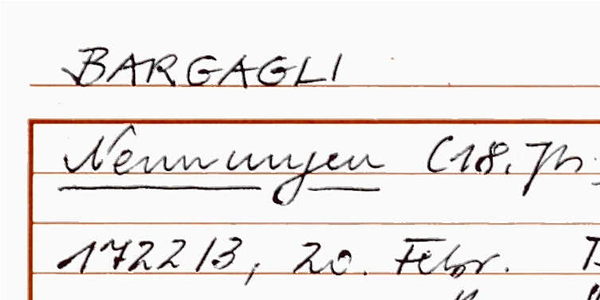 BARGAGLI
Nennungen (18. Jh.
1722/3, 20. Febr.